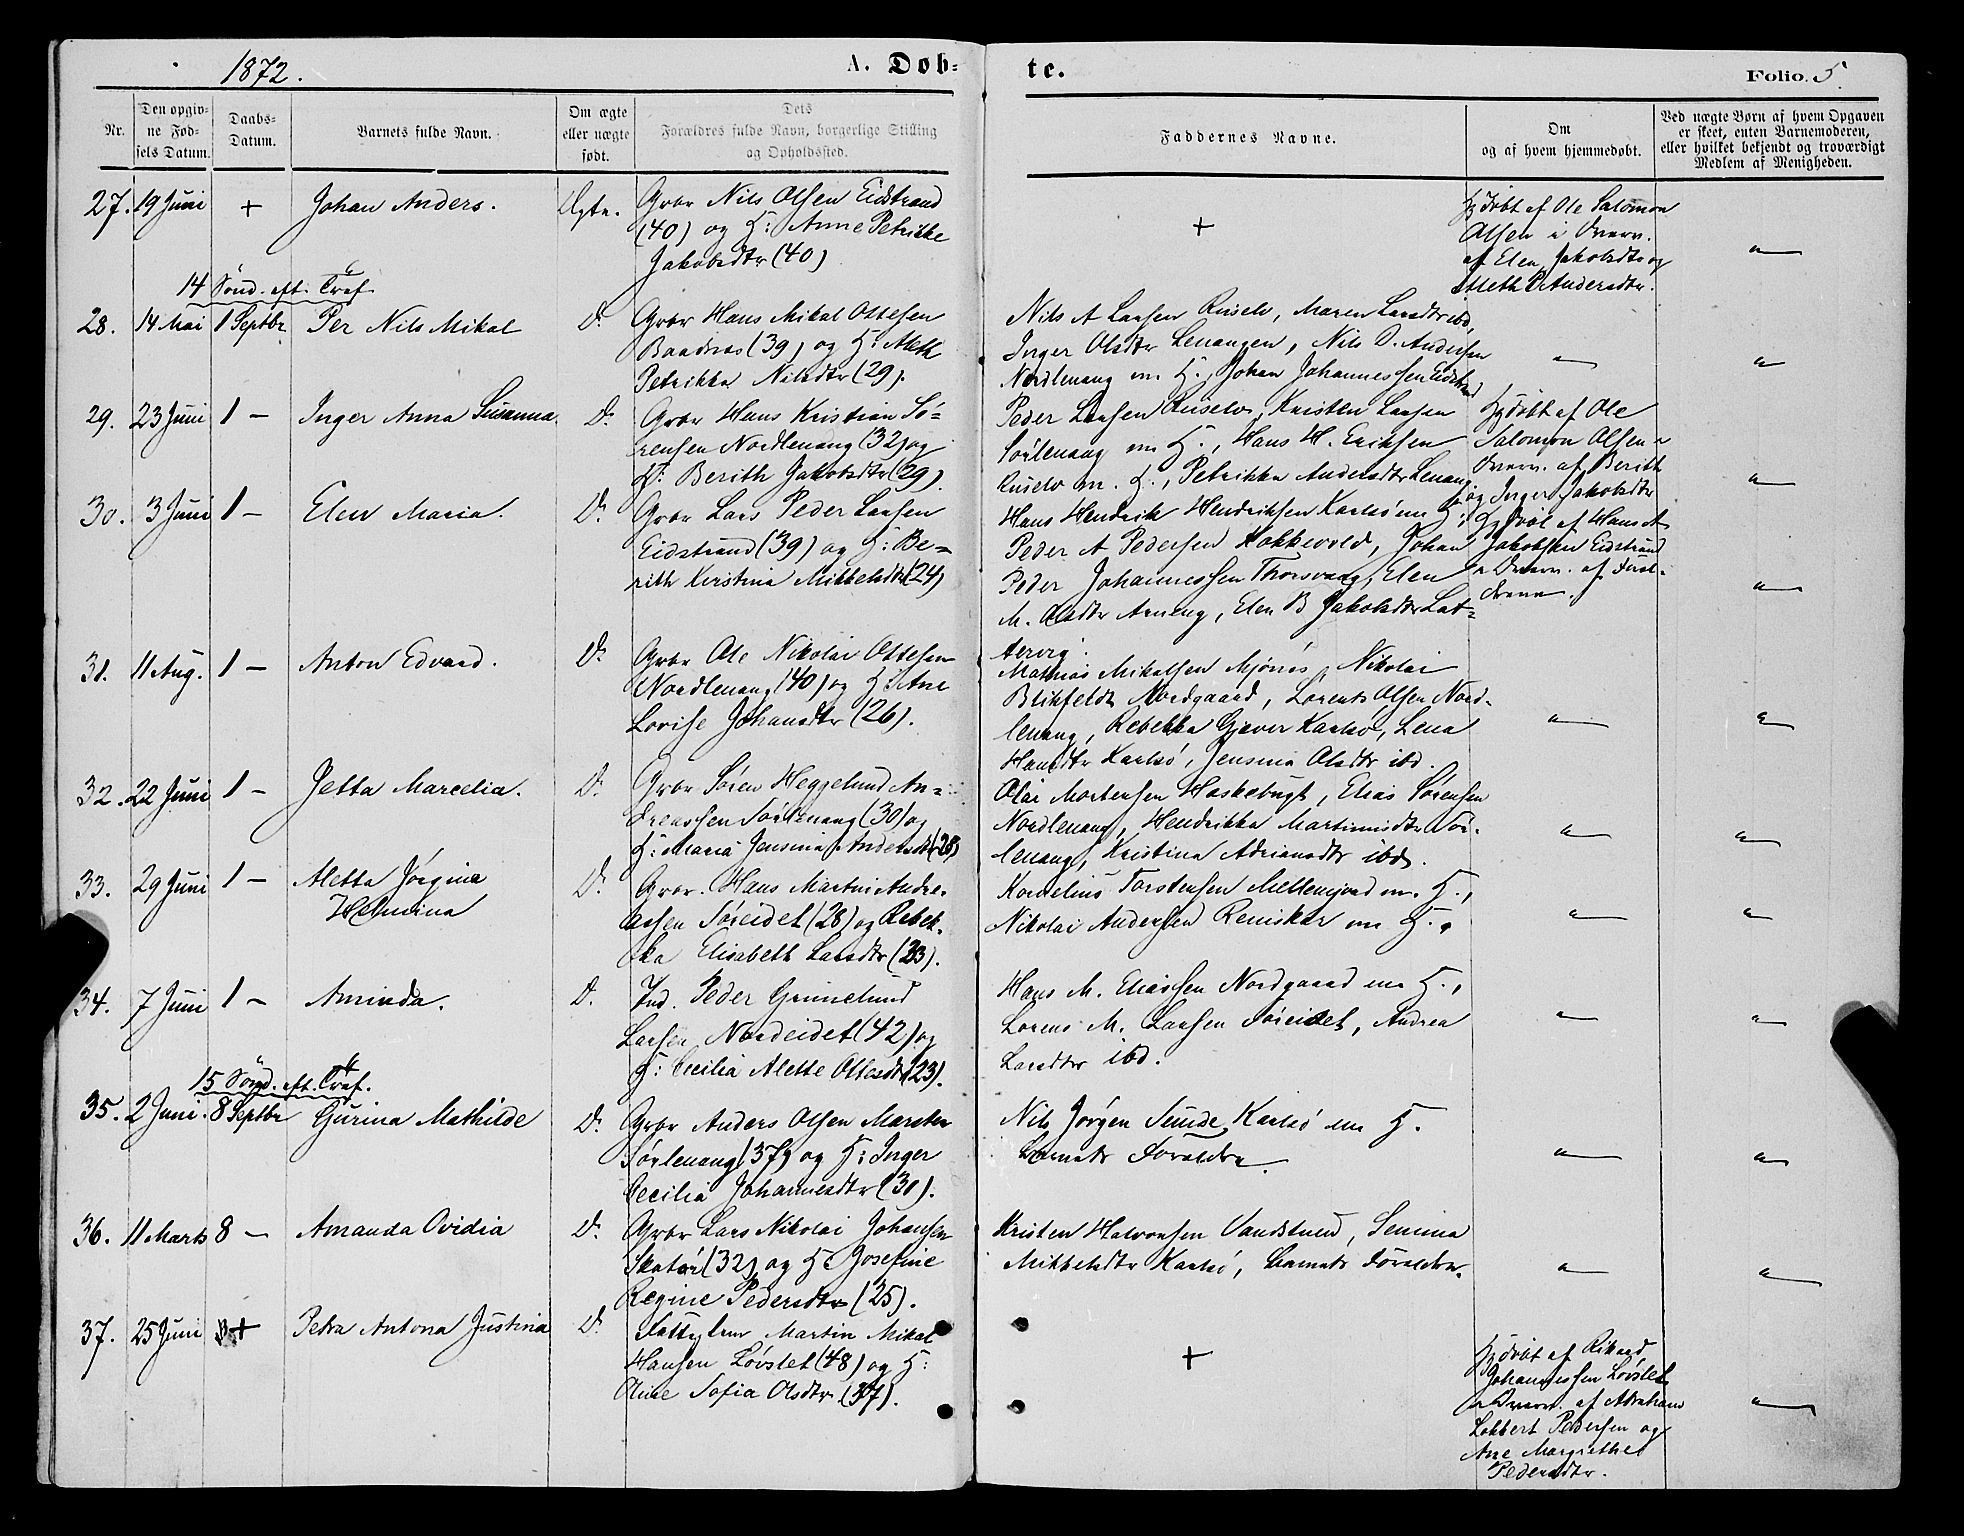 1872.
A. Døb-
te.
Folio. 5.
Nr.
Den opgiv-
ne Fød-
sels Datum.
Daabs-
Datum.
Barnets fulde Navn.
Om ægte
eller uægte
født.
Dets
Forældres fulde Navn, borgerlige Stilling
og Opholdssted.
Faddernes Navne.
Om
og af hvem hjemmedøbt.
Ved uægte Børn af hvem Opgaven
er skeet, enten Barnemoderen,
eller hvilket bekjendt og troværdigt
Medlem af Menigheden.
27. 19 Juni + Johan Anders. Ægte.
Gbr Nils Olsen Eidstrand
(40) og H: Anne Petrikke
Jakobsdtr (40)
+
Hjdøbt af Ole Salomon
Olsen i Overv.
af Elen Jakobsdtr og
Meth P Andersdtr.
"
14 Sönd. eft. Tref.
28. 14 Mai 1 Septbr Per Nils Mikal D.
Gbr Hans Mikal Ottesen
Baadnes (39) og H: Meth
Petrikka Nilsdtr (29).
Nils A Larsen Ruselv, Maren Larsdtr ibd,
Inger Olsdtr Lenangen, Nils O. Andersen
Nordlenang m H., Johan Johannessen Eidstrand
"
"
29. 23 Juni 1 - Inger Anna Susanna. D.
Gbr Hans Kristian Sö-
rensen Nordlenang (32) og
H: Berith Jakobsdtr (29).
Peder Larsen Ruselv, Kristen Larsen
Sörlenang m H., Hans H. Eriksen
Ruselv m. H., Petrikka Andersdtr Lenang
Hjdöbt af Ole
Salomon Olsen i
Overv. af Berith
og Inger Jakobsdtr
"
30. 3 Juni 1 - Elen Maria. D.
Gbr Lars Peder Larsen
Eidstrand (39) og H: Be-
rith Kirstina Mikkelsdtr (24)
Hans Hendrik Hendriksen Karlsö m H.,
Peder A Pedersen Kokkevold, Johan
Peder Johannessen Thorsvaag, Elen
M. Olsdtr Arneng, Elen B Jakobsdtr Lat-
tervig.
Hjdöbt af Hans A
Jakobsen Eidstrand
i Overv. af Foræl-
drene.
"
31. 11 Aug. 1 - Anton Edvard. D.
Gbr Ole Nikolai Ottesen
Nordlenang (40) og H: Ane
Lovise Johansdtr (26).
Mathias Mikalsen Mjönes, Nikolai
Blikfeldt Nordgaard, Lorents Olsen Nord-
lenang, Rebekka Gjever Karlsö, Lena
Hansdtr Karlsö, Jensina Olsdtr ibd.
"
"
32. 22 Juni 1 - Jetta Marcelia. D.
Gbr Sören Heggelund An-
dreassen Sörlenang (30) og
H: Maria Jensina Andersdtr (28)
Olai Mortensen Haskebugt, Elias Sörensen
Nordlenang, Hendrikka Martinusdtr Sör-
lenang, Kristina Adriansdtr ibd.
"
"
33. 29 Juni 1 - Aletta Jörgine D.
Helmina
Gbr. Hans Martin Andre-
assen Söreidet (28) og Rebek-
ka Elisabeth Larsdtr (23).
Kornelius Torstensen Mellemjord m. H.,
Nikolai Andersen Reniskar m H.,
"
"
34. 7 Juni 1 - Aminda. D.
Ind. Peder Grönelund
Larsen Nordeidet (42) og
H: Cecilia Alette Ottesdtr (23).
Hans M. Eliassen Nordgaard m H.,
Lorens M. Larsen Söreidet, Andrea
Larsdtr ibd.
"
"
15 Sönd. eft. Tref.
35. 2 Juni. 8 Septbr Gurina Mathilde D.
Gbr Anders Olsen Morten
Sörlenang (37) og H: Inger
Cecilia Johannesdtr (30).
Nils Jörgen Sunde Karlsö m H.
Barnets Forældre.
"
"
36. 11 Marts 8 - Amanda Ovidia D.
Gbr Lars Nikolai Johansen
Skatör (32) og H: Josefine
Regine Pedersdtr (25).
Kristen Halvorsen Vandstund, Semina
Mikkelsdtr Karlsö, Barnets Forældre.
"
"
37. 25 Juni + Petra Antona Justina D.
Fattiglem Martin Mikal
Hansen Lövslet (48) og H:
Oline Sofia Olsdtr (37).
+
Hjdöbt af Rikard
Johannessen Lövslet
i Overv. af Abraham
Lokkert Pedersen og
Ane Margrethe
Pedersdtr.
"